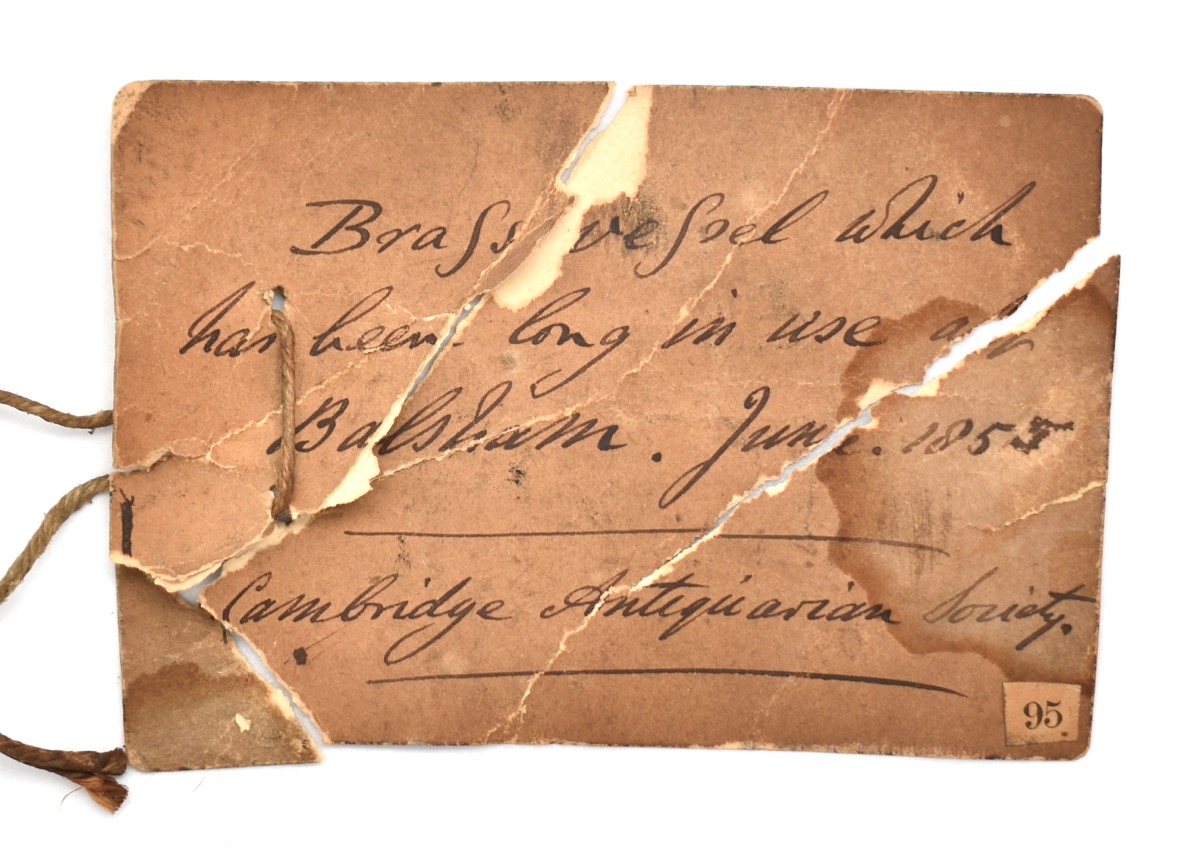 Braſs veſsel which
has been long in use at
Balsham. June.
Cambridge Antiquarian Society.
95